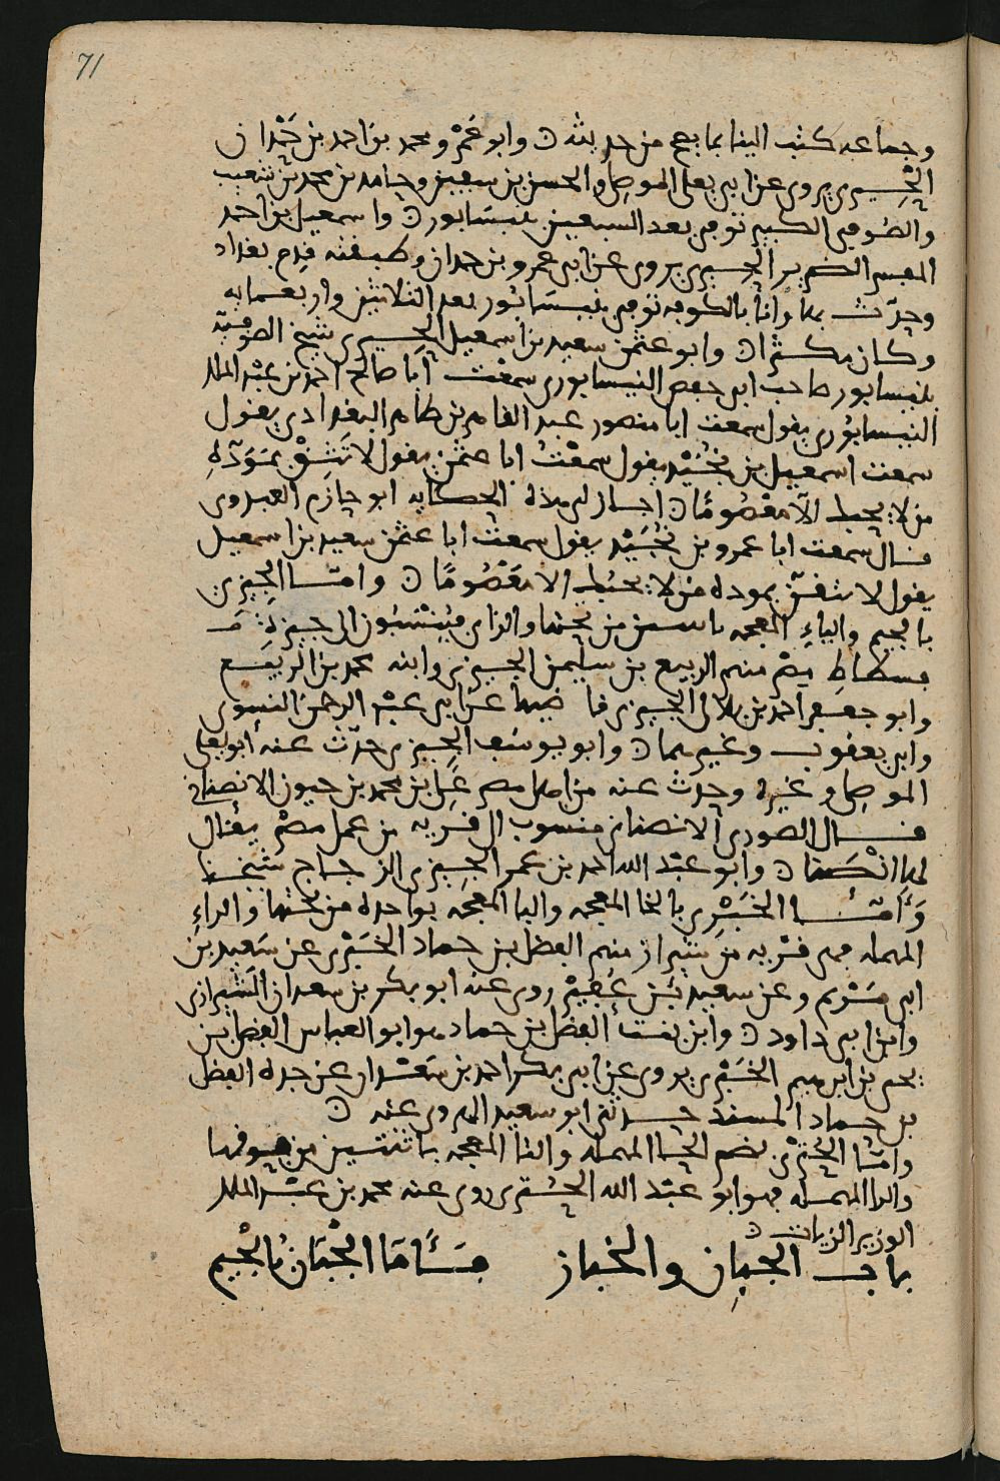 71
وجماعه كتب الينا بما يصح من حديثه ن وابو عمرو محمد بن احمد بن حمدان
الحيرى يروى عن ابى يعلى الموصلى والحسن بن سفين وحامد بن محمد بن شعيب
والصوفى الكبير توفى بعد السبعين بنيسابور ن واسمعيل بن احمد
المفسر الضرير الحيرى يروى عن ابى عمرو بن حمدان وطبقته قدم بغداد
وحدث بها وانا بالكوفه توفى بنيسابور بعد الثلاثين واربعمايه
وكان مكثرا ن وابو عثمن سعيد بن اسمعيل الحيرى شيخ الصوفية
بنيسابور صاحب ابى حفص النيسابورى سمعت ابا صالح احمد بن عبد الملك
النيسابورى يقول سمعت ابا منصور عبد القاهر بن طاهر البغدادى يقول
سمعت اسمعيل بن نجيد يقول سمعت ابا عثمن يقول لا تثق بمودة
من لا يحبك الا معصوما ن اجاز لى هذه الحكايه ابو حازم العبدوى
قال سمعت ابا عمرو بن نجيد يقول سمعت ابا عثمن سعيد بن اسمعيل
يقول لا تثق بموده من لا يحبك الا معصوما ن وامّا الجيزى
بالجيم والياء المعجمه باثنتين من تحتها والزاى فينتسبون الى جيزة
فسطاط مصر منهم الربيع بن سليمن الجيزى وابنه محمد بن الربيع
وابو جعفر احمد بن بلال الجيزى قاضيها عن ابى عبد الرحمن النسوى
وابى يعقوب وغيرهما ن وابو يوسف الجيزى حدّث عنه ابو يعلى
الموصلى وغيره وحدث عنه من اهل مصر على بن محمد بن حيون الانصناى
قال الصورى الانصناى منسوب الى قريه من عمل مصر يقال
لها انصنا ن وابو عبد الله احمد بن عمر الجيزى الزجاج شيخنا
وامّا الخبرى بالخا المعجمه والبا المعجمه بواحده من تحتها والراء
المهمله فهى قريه من شيراز منهم الفضل بن حماد الخبرى عن سعيد بن
ابى مريم وعن سعيد بن عفير روى عنه ابو بكر بن سعدان الشيرازى
وابن ابى داود ن وابن بنت الفضل بن حماد هو ابو العباس الفضل بن
يحيى بن ابرهيم الخبرى يروى عن ابى بكر احمد بن سعدان عن جده الفضل
بن حماد المسند حدثنى ابو سعيد الهروى عنه ن
وامّا الحترى بضم الحا المهمله والتا المعجمه باثنتين من فوقها
والرا المهمله فهو ابو عبد الله الحترى روى عنه محمد بن عبد الملك
الوزير الزيات ن
باب الجبان والخباز فامّا الجبان بالجيم